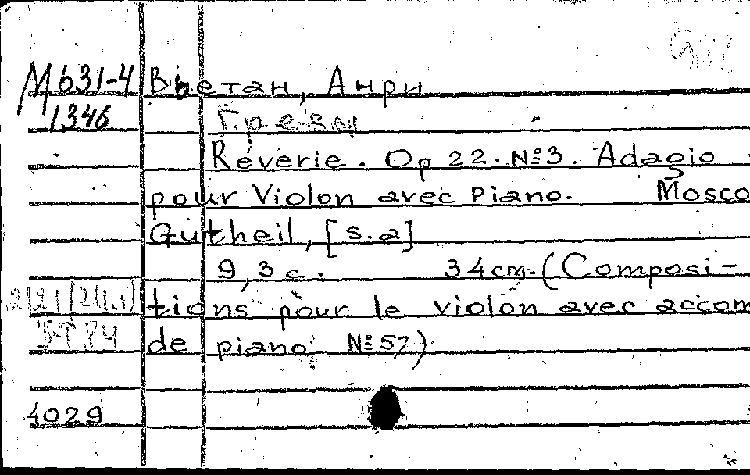 М631-4 Вьетан, Анри
1346 Грезы
Rêverie. Op 22. №3. Adagio
pour Violon avec Piano. Mosco
Gutheil, [s.a]
9,3 с. 34cm. (Composi-
tions pour le violon avec accom
de piano №57)
4029